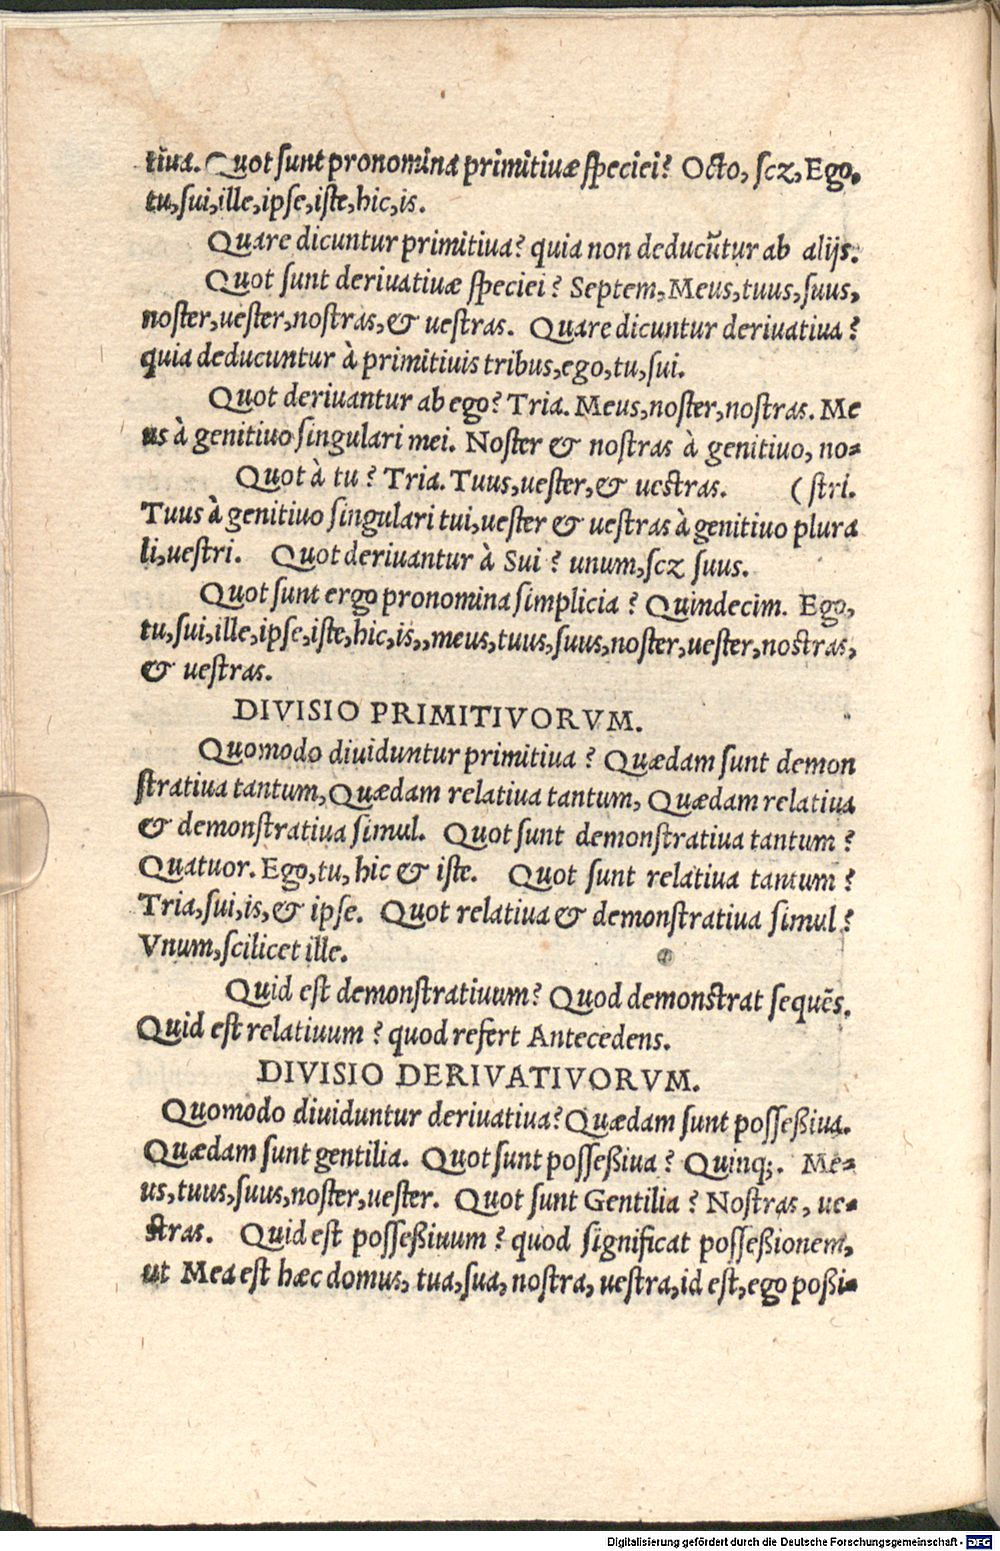 tiua. Quot sunt pronomina primitiuæ speciei? Octo, scz, Ego,
tu, sui, ille, ipse, iste, hic, is.
Quare dicuntur primitiua? quia non deducūtur ab alijs.
Quot sunt deriuatiuæ speciei? Septem, Meus, tuus, suus,
noster, uester, nostras, & uestras. Quare dicuntur deriuatiua?
quia deducuntur à primitiuis tribus, ego, tu, sui.
Quot deriuantur ab ego? Tria. Meus, noster, nostras. Me
us à genitiuo singulari mei. Noster & nostras à genitiuo, no-
Quot à tu? Tria. Tuus, uester, & uestras. (stri.
Tuus à genitiuo singulari tui, uester & uestras à genitiuo plura
li, uestri. Quot deriuantur à Sui? unum, scz suus.
Quot sunt ergo pronomina simplicia? Quindecim. Ego,
tu, sui, ille, ipse, iste, hic, is,, meus, tuus, suus, noster, uester, nostras,
& uestras.
DIVISIO PRIMITIVORVM.
Quomodo diuiduntur primitiua? Quædam sunt demon
stratiua tantum, Quædam relatiua tantum, Quædam relatiua
& demonstratiua simul. Quot sunt demonstratiua tantum?
Quatuor. Ego, tu, hic & iste. Quot sunt relatiua tantum?
Tria, sui, is, & ipse. Quot relatiua & demonstratiua simul?
Vnum, scilicet ille.
Quid est demonstratiuum? Quod demonstrat sequēs.
Quid est relatiuum? quod refert Antecedens.
DIVISIO DERIVATIVORVM.
Quomodo diuiduntur deriuatiua? Quædam sunt posseßiua.
Quædam sunt gentilia. Quot sunt posseßiua? Quinq;. Me-
us, tuus, suus, noster, uester. Quot sunt Gentilia? Nostras, ue-
stras. Quid est posseßiuum? quod significat possesßionem,
ut Mea est hæc domus, tua, sua, nostra, uestra, id est, ego poßi-
Digitalisierung gefördert durch die Deutsche Forschungsgemeinschaft - DFG